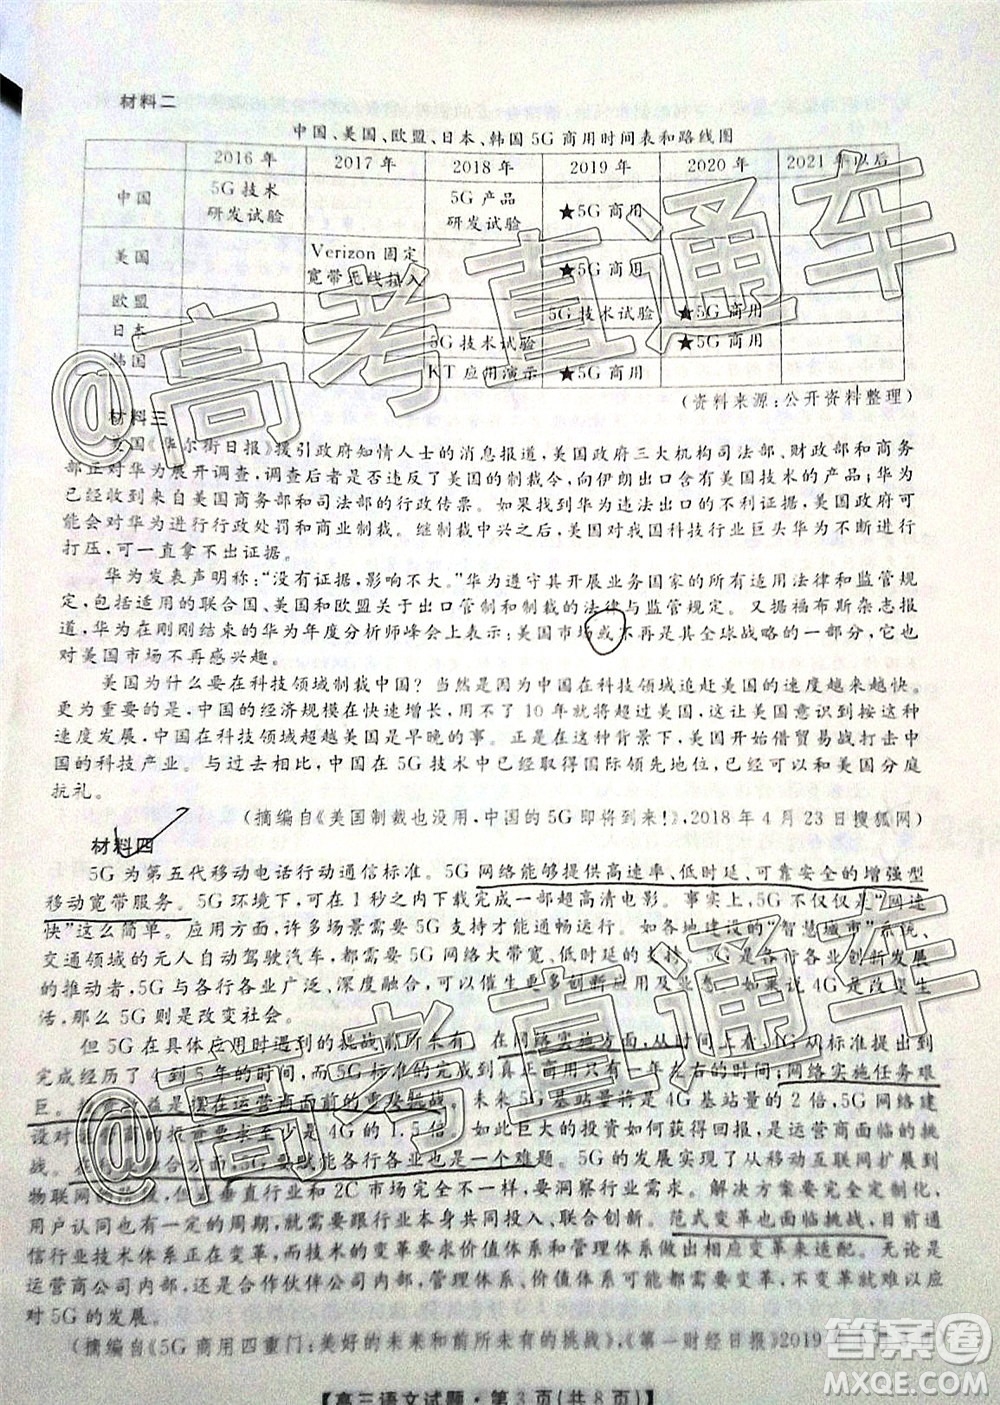 材料二
中国、美国、欧盟、日本、韩国5G商用时间表和路线图
2016年 2017年 2018年 2019年 2020年 2021年以后
中国 5G技术研发试验 5G产品研发试验 ★5G商用
美国 Verizon固定宽带无线接入 ★5G商用
欧盟 5G技术试验 ★5G商用
日本 5G技术试验 ★5G商用
韩国 KT应用演示 ★5G商用
(资料来源:公开资料整理)
材料三
美国《华尔街日报》援引政府知情人士的消息报道,美国政府三大机构司法部、财政部和商务
部正对华为展开调查,调查后者是否违反了美国的制裁令,向伊朗出口含有美国技术的产品;华为
已经收到来自美国商务部和司法部的行政传票。如果,查到华为违法出口的不利证据,美国政府
可能会对华为进行行政处罚和商业制裁。继制裁中兴之后,美国对我国科技行业巨头华为进行
打压,可一直拿不出证据。
华为发表声明称:“没有证据,影响不大。”华为遵守其开展业务国家的所有适用法律和监管规
定,包括适用的联合国、美国和欧盟关于出口管制和制裁的法律与监管规定。又据福布斯杂志报
道,华为在刚刚结束的华为年度分析师峰会上表示:美国市场或不再是其全球战略的一部分,它也
对美国市场不再感兴趣。
美国为什么要在科技领域制裁中国?当然是因为中国在科技领域追赶美国的速度越来越快。
更为重要的是,中国的经济规模在快速增长,用不了10年就将超过美国,这让美国意识到按这种
速度发展,中国在科技领域超越美国是早晚的事。正是在这种背景下,美国开始借贸易战打击中
国的科技产业。与过去相比,中国在5G技术中已经取得国际领先地位,已经可以和美国分庭
抗礼。
(摘编自《美国制裁也没用,中国的5G即将到来!》,2018年4月23日搜狐网)
材料四
5G为第五代移动电话行动通信标准。5G网络能够提供高速率、低时延、可靠安全的增强型
移动宽带服务。5G环境下,可在1秒之内下载完成一部超高清电影。事实上,5G不仅仅是“网速
快”这么简单。应用方面,许多场景需要5G支持才能通畅运行。如各地建设的“智慧城市”系统、
交通领域的无人自动驾驶汽车,都需要5G网络大带宽、低时延的支持。5G是各行各业创新发展
的推动者,5G与各行各业广泛、深度融合,催生更多创新应用和业态。如果说4G是改变生
活,那么5G则是改变社会。
但5G在具体应用时遇到的挑战前所未有。在网络实施方面,从时间上看,4G从标准到
完成经历了4到5年的时间,5G从标准完成到真正商用只有一年左右的时间;网络实施任务艰
巨。投资收益是摆在运营商面前的重大挑战。未来5G基站量是4G基站量的2倍,5G网络建
设对运营商的投资要求至少是4G的1.5倍,如此巨大的投资如何获得回报,是运营商面临的挑
战。在行业融合方面,5G要赋能各行各业也是一个难题。5G的场景是从移动互联网扩展到
物联网的领域,但垂直行业和2C市场完全不一样,要洞察行业需求。解决方案要完全定制化,
用户认同也有一定的周期,鼓励跟行业本身共同投入、联合创新。范式变革也面临挑战,目前通
信行业技术体系正在变革,而技术的变革要求价值体系和管理体系做出相应变革来适配。无论是
运营商公司内部,还是合作伙伴公司内部,管理体系、价值体系可能都需要变革,不变革就难以应
对5G的发展。
(摘编自《5G商用四重门:美好的未来和前所未有的挑战》,《第一财经日报》2019
【高三语文试题·第3页(共8页)】
@高考直通车
@高考直通车
答案圈
MXQE.COM